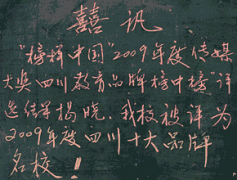 囍讯
“榜样中国”2009年度传媒
大奖四川教育品牌榜中榜”评
选结果揭晓,我校被评为
2009年度四川十大品牌
名校!